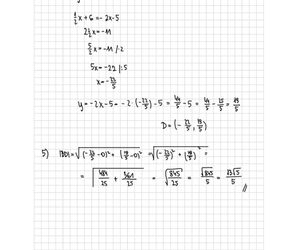 y
½x + 6 = -2x - 5
2½x = -11
5/2 x = -11 /·2
5x = -22 /:5
x = -22/5
y = -2x - 5 = -2·(-22/5) - 5 = 44/5 - 5 = 44/5 - 25/5 = 19/5
D = (-22/5; 19/5)
5) |OD| = √((-22/5 - 0)² + (19/5 - 0)²) = √((-22/5)² + (19/5)²) =
= √(484/25 + 361/25) = √(845/25) = √845/5 = 13√5/5